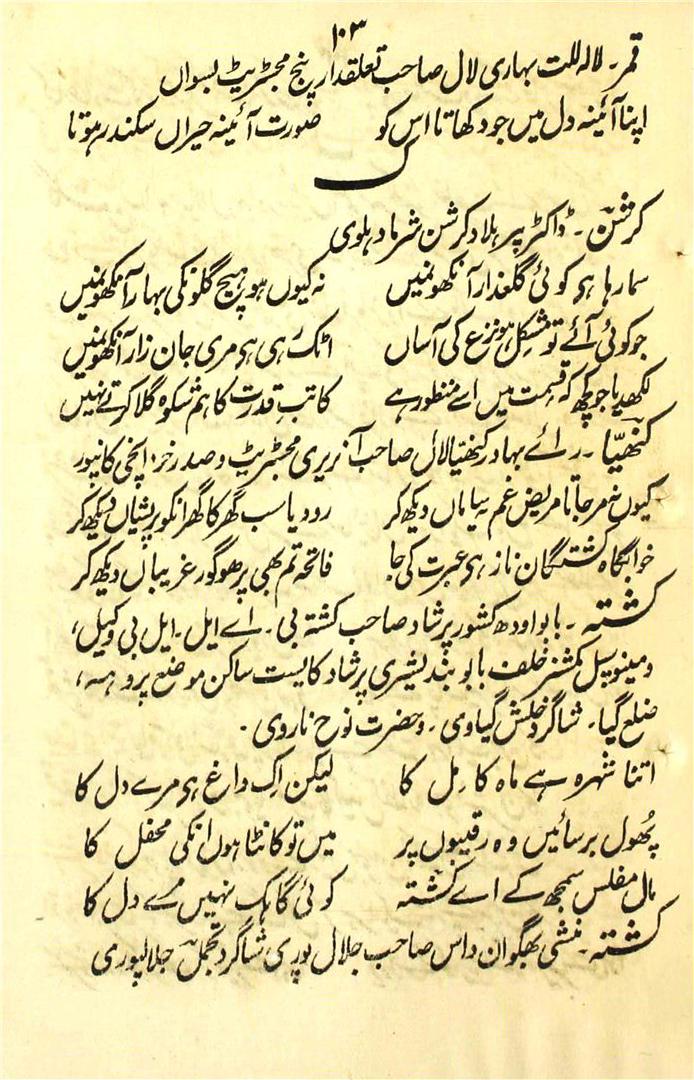 ۱۰۳
قمر۔ لالہ للت بہاری لال صاحب تعلقدار پنچ مجسٹریٹ بسواں
اپنا آئینہ دل میں جو دکھاتا اس کو صورت آئینہ حیراں سکندر ہوتا
ک
کرشن۔ ڈاکٹر پرہلاد کرشن شرما دہلوی
سما رہا ہی کوئی گلغدار آنکھونمیں نہ کیوں ہو ہیچ گلونکی بہار آنکھونمیں
جو کوئی آئے تو مشکل ہو نزع کی آساں اٹک رہی ہی مری جان زار آنکھونمیں
لکھدیا جو کچھ کہ قسمت میں اسے منظور ہے کاتب قدرت کا ہم شکوہ گلا کرتے نہیں
کنھیّا۔ رائے بہادر کنھیا لال صاحب آنریری مجسٹریٹ و صدر خزانچی کانپور
کیوں نہ مر جاتا مریض غم بیاباں دیکھ کر رو دیا سب گھر کا گھر انکو پریشاں دیکھ کر
خوابگاہ کشتگان ناز ہی عبرت کی جا فاتحہ تم بھی پڑھو گور غریباں دیکھ کر
کشتہ۔ بابو اودھ کشور پرشاد صاحب کشتہ بی۔ اے ایل۔ ایل بی وکیل،
و مینوسپل کمشنر خلف بابو بندیشری پرشاد کایست ساکن موضع پروہہ،
ضلع گیا۔ شاگرد خلش گیاوی۔ و حضرت نوح ناروی۔
اتنا شہرہ ہے ماہ کامل کا لیکن اک داغ ہی مرے دل کا
پھول برسائیں وہ رقیبوں پر میں تو کانٹا ہوں انکی محفل کا
مال مفلس سمجھ کے اے کشتہ کوئی گاہک نہیں مرے دل کا
کشتہ۔ منشی بھگوان داس صاحب جلال پوری شاگرد تجمل جلالپوری